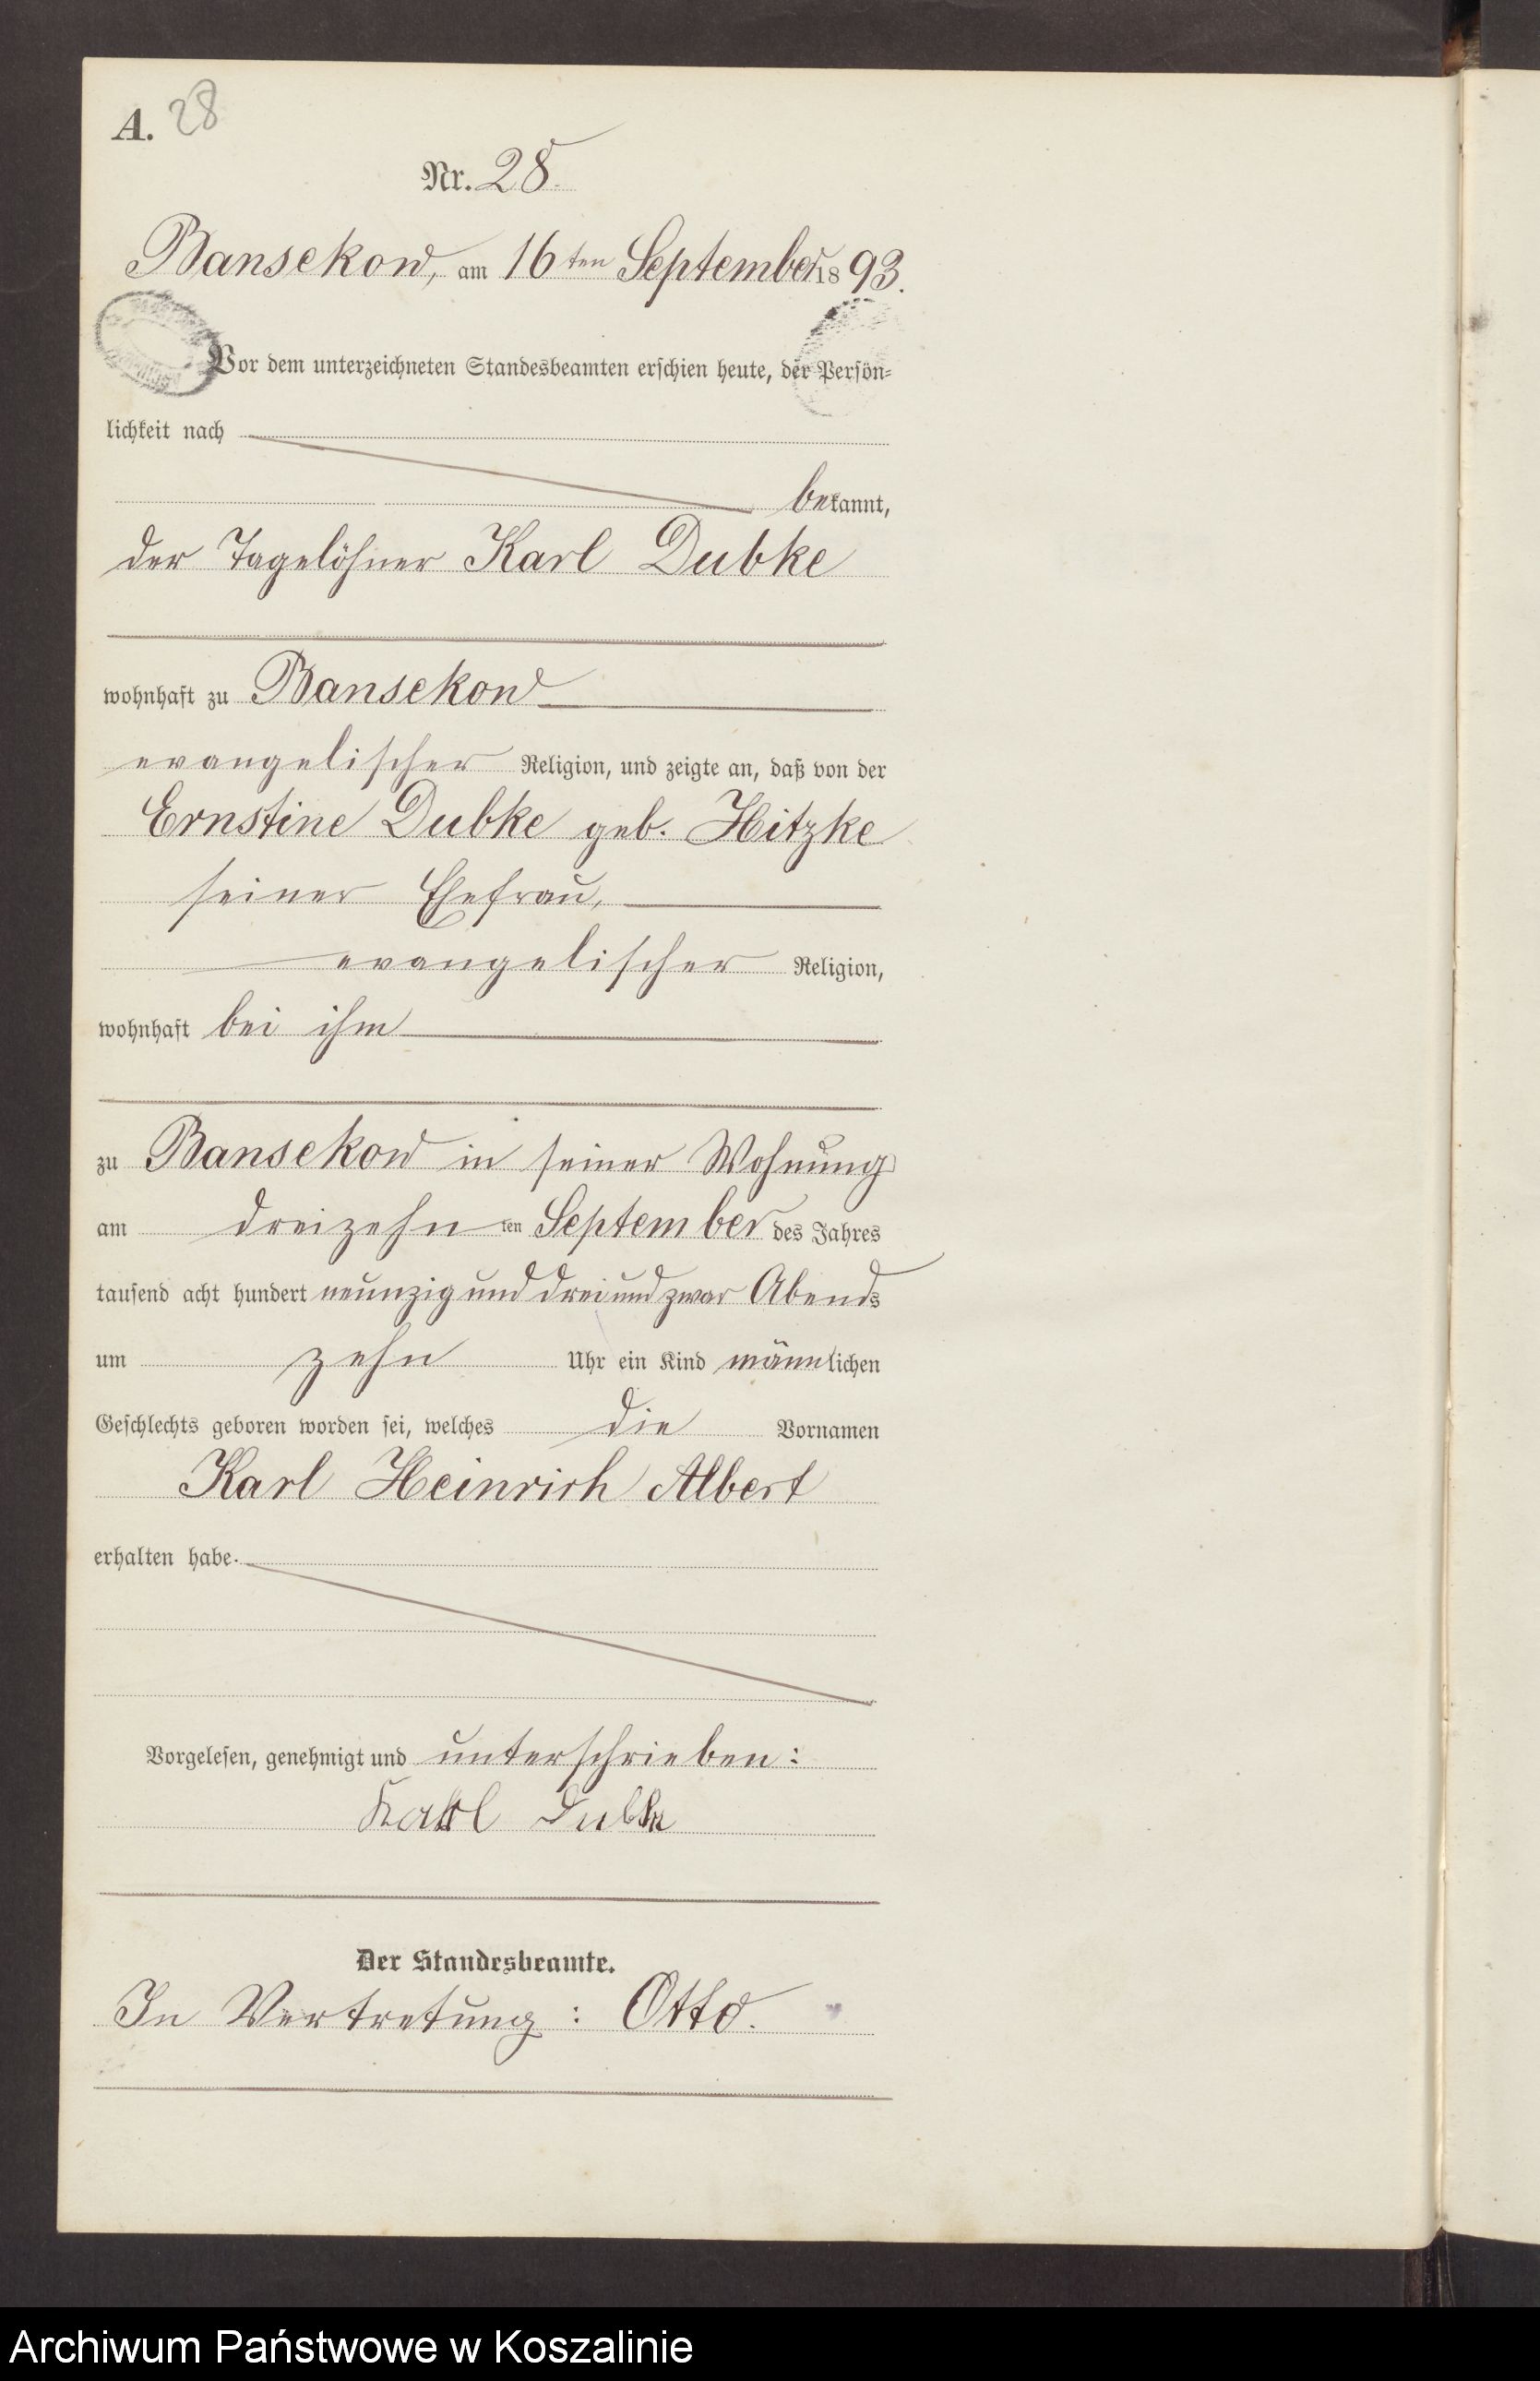 A. 28
Nr. 28.
Bansekow, am 16ten September 1893.
Vor dem unterzeichneten Standesbeamten erschien heute, der Persön-
lichkeit nach
bekannt,
der Tagelöhner Karl Dubke
wohnhaft zu Bansekow
evangelischer Religion, und zeigte an, daß von der
Ernstine Dubke geb. Hitzke
seiner Ehefrau,
evangelischer Religion,
wohnhaft bei ihm
zu Bansekow in seiner Wohnung
am dreizehnten September des Jahres
tausend acht hundert neunzig und drei und zwar Abends
um zehn Uhr ein Kind männlichen
Geschlechts geboren worden sei, welches die Vornamen
Karl Heinrich Albert
erhalten habe.
Vorgelesen, genehmigt und unterschrieben:
Karl Dubke
Der Standesbeamte.
In Vertretung: Otto.
Archiwum Państwowe w Koszalinie